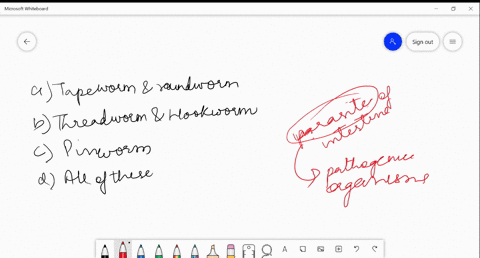 Microsoft Whiteboard
Sign out
a) Tapeworm & roundworm
b) Threadworm & Hookworm
c) Pinworm
d) All of these
parasite of
intestine
pathogenic
organisms